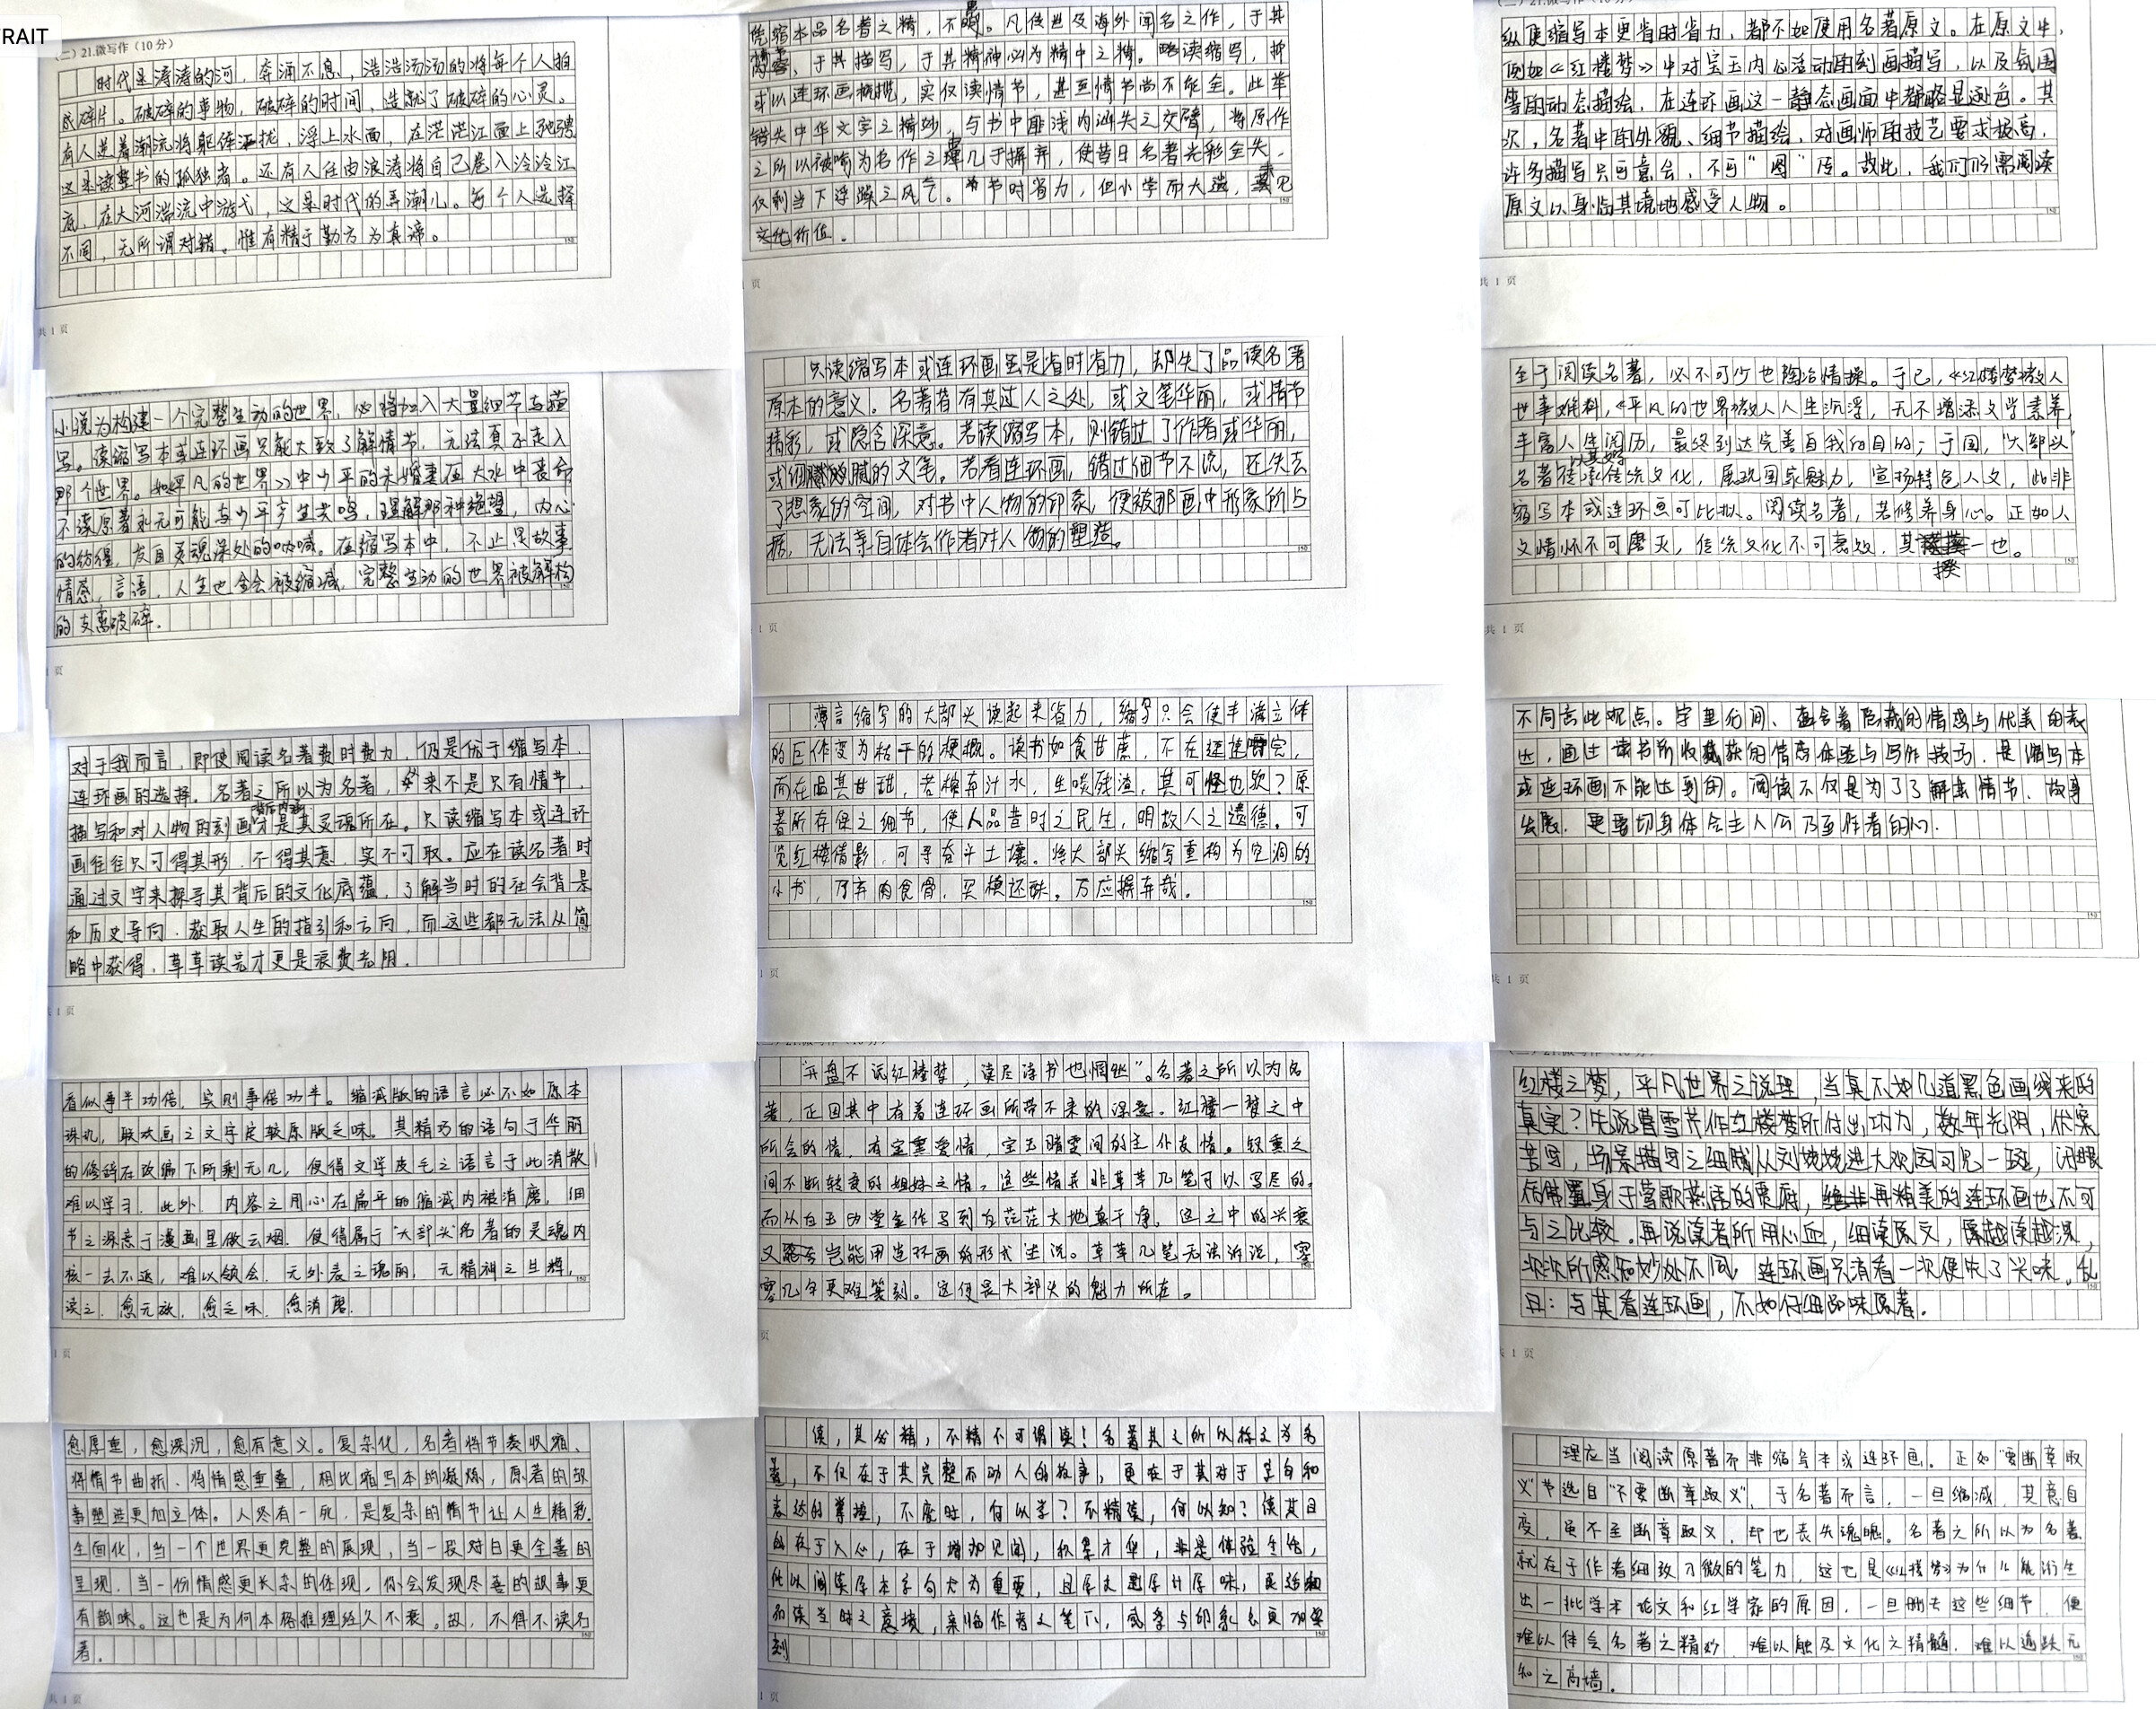 RAIT
（二）21.微写作（10分）
时代是涛涛的河，奔涌不息，浩浩汤汤的将每个人拍
成碎片。破碎的事物，破碎的时间，造就了破碎的心灵。
有人逆着潮流将躯体拢，浮上水面，在茫茫江面上驰骋
这是读整书的孤独者。还有人任由浪涛将自己卷入冷冷江
底，在大河湍流中游弋，这是时代的弄潮儿。每个人选择
不同，无所谓对错。惟有精于勤方为真谛。
150
共 1 页
小说为构建一个完整生动的世界，必将加入大量细节与描
写。读缩写本或连环画只能大致了解情节，无法真正走入
那个世界。如《平凡的世界》中少平的未婚妻在大水中丧命
不读原著永远可能与少平产生共鸣，理解那种绝望，内心
的彷徨，发自灵魂深处的呐喊。在缩写本中，不止是故事
情感，言语，人生也全会被缩减，完整生动的世界被解构
的支离破碎。
页
对于我而言，即使阅读名著费时费力，仍是优于缩写本、
连环画的选择。名著之所以为名著，从来不是只有情节，
描写和对人物的刻画背后内涵才是其灵魂所在。只读缩写本或连环
画往往只可得其形，不得其意，实不可取。应在读名著时
通过文字来探寻其背后的文化底蕴，了解当时的社会背景
和历史导向，获取人生的指引和方向，而这些都无法从简
略中获得，草草读完才更是浪费光阴。
共 1 页
看似事半功倍，实则事倍功半。缩减版的语言必不如原本
珠玑，联欢画之文字定较原版乏味。其精巧的语句于华丽
的修辞在改编下所剩无几，使得文学皮毛之语言于此消散
难以学习。此外，内容之用心在扁平的脑减内被消磨，细
节之深意于漫画里做云烟，使得属于"大部头"名著的灵魂内
核一去不返，难以领会。无外表之瑰丽，无精神之旦辉，
读之，愈无故，愈乏味，愈消磨。
1 页
愈厚重，愈深沉，愈有意义。复杂化，名著将节奏收缩、
将情节曲折、将情感重叠，相比缩写本的凝炼，原著的故
事塑造更加立体。人终有一死，是复杂的情节让人生精彩。
全面化，当一个世界更完整的展现，当一段对白更全善的
呈现，当一份情感更长杂的体现，你会发现尽善的故事更
有韵味。这也是为何本格推理经久不衰。故，不得不读名
著。
共 1 页
凭缩本品名著之精，不。凡传世及海外闻名之作，于其
内容，于其描写，于其精神必为精中之精。略读缩写，抑
或以连环画概揽，实仅读情节，甚至情节尚不能全。此举
错失中华文字之精妙，与书中匪浅内涵失之交臂，将原作
之所以被喻为名作之理几于摒弃，使昔日名著光彩全失，
仅剩当下浮躁之风气。节时省力，但小学而大遗，未见
文化价值。
页
只读缩写本或连环画虽是省时省力，却失了品读名著
原本的意义。名著皆有其过人之处，或文笔华丽，或情节
精彩，或隐含深意。若读缩写本，则错过了作者或华丽，
或细腻的文笔。若看连环画，错过细节不说，还失去
了想象的空间，对书中人物的印象，便被那画中形象所占
据，无法亲自体会作者对人物的塑造。
1 页
薄言缩写的大部头读起来省力，缩写只会使丰满立体
的巨作变为枯干的梗概。读书如食甘蔗，不在速速嚼完，
而在品其甘甜，若榨弃汁水，生啖残渣，其可怪也欤？原
著所存便之细节，使人品昔时之民生，明故人之遗德。可
览红楼倩影，可寻奋斗土壤。将大部头缩写重构为空洞的
小书，乃弃肉食骨，买椟还珠，万应摒弃哉。
1 页
"开盘不说红楼梦，读尽诗书也惘然"。名著之所以为名
著，正因其中有着连环画所带不来的深意。红楼一梦之中
所含的情，有宝黛爱情，宝玉晴雯间的主仆友情。钗黛之
间不断转变的姐妹之情。这些情并非草草几笔可以写尽的。
而从白玉功堂金作马到白茫茫大地真干净，这之中的兴衰
又岂能用连环画的形式尘洗。草草几笔无法诉说，寥
寥几字更难篆刻。这便是大部头的魅力所在。
页
读，其必精，不精不可谓读！名著其之所以称之为名
著，不仅在于其完整不动人的故事，更在于其对于言自和
表达的掌握，不废时，何以学？不精读，何以知？读其目
的在于入心，在于增加见闻，积累才华，非是体验生活，
所以阅读原本字句尤为重要，且原文是原汁原味，更适细
品读当时之意境，亲临作者之笔下，感参与印象也更加深
刻
1 页
纵使缩写本更省时省力，都不如使用名著原文。在原文中，
例如《红楼梦》中对宝玉内心活动的刻画描写，以及氛围
等的动态描绘，在连环画这一静态画面中都略显逊色。其
次，名著中的外貌、细节描绘，对画师的技艺要求极高，
许多描写只可意会，不可"图"传。故此，我们仍需阅读
原文以身临其境地感受人物。
共 1 页
至于阅读名著，必不可少也陶冶情操。于己，《红楼梦》教人
世事难料，《平凡的世界》教人人生沉浮，无不增添文学素养，
丰富人生阅历，最终到达完善自我的目的；于国，"大部头"
名著以其妙传承传统文化，展现国家魅力，宣扬特色人文，此非
缩写本或连环画可比拟。阅读名著，若修养身心。正如人
文情怀不可磨灭，传统文化不可衰败，其揆一也。
共 1 页
不同意此观点。字里行间、蕴含着隐藏的情感与优美的表
达，通过读书所收获的情感体验与写作技巧，是缩写本
或连环画不能达到的。阅读不仅是为了了解其情节、故事
发展，更要切身体会主人公乃至作者的心。
共 1 页
红楼之梦，平凡世界之说理，当真不如几道黑色画线来的
真实？先说曹雪芹作红楼梦所付出功力，数年光阴，伏案
苦写，场景描写之细腻从刘姥姥进大观园可见一斑，闭眼
仿佛置身于莺歌燕语的贾府，再精美的连环画也不可
与之比较。再说读者所用心血，细读原文，愿越读越深，
次次所感知妙处不同，连环画只消看一次便失了兴味。乱
曰：与其看连环画，不如仔细品味原著。
共 1 页
理应当阅读原著而非缩写本或连环画。正如"要断章取
义"节选自"不要断章取义"，于名著而言，一旦缩减，其意自
变，虽不至断章取义，却也丧失魂魄。名著之所以为名著
就在于作者细致刁微的笔力，这也是《红楼梦》为什么能衍生
出一批学术论文和红学家的原因，一旦删去这些细节，便
难以体会名著之精妙，难以触及文化之精髓，难以逾跃无
知之高墙。